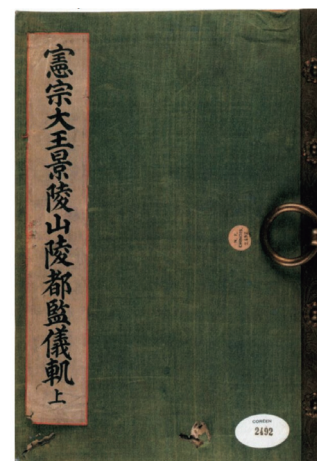 憲宗大王景陵山陵都監儀軌 上
COREEN
2492